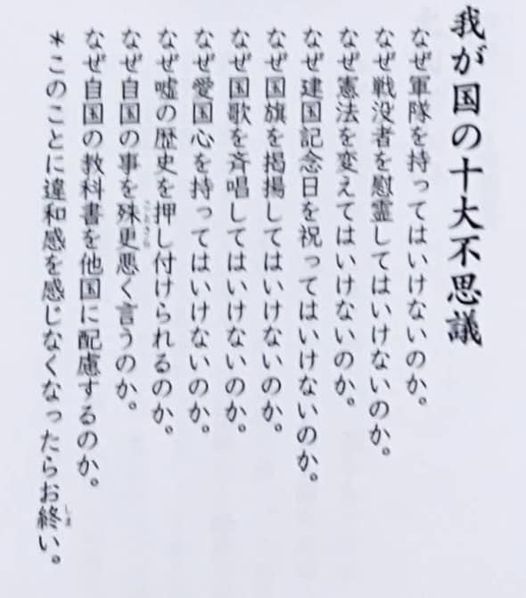 我が国の十大不思議
なぜ軍隊を持ってはいけないのか。
なぜ戦没者を慰霊してはいけないのか。
なぜ憲法を変えてはいけないのか。
なぜ建国記念日を祝ってはいけないのか。
なぜ国旗を掲揚してはいけないのか。
なぜ国歌を斉唱してはいけないのか。
なぜ愛国心を持ってはいけないのか。
なぜ嘘の歴史を押し付けられるのか。
なぜ自国の事を殊更悪く言うのか。
なぜ自国の教科書を他国に配慮するのか。
*このことに違和感を感じなくなったらお終い。